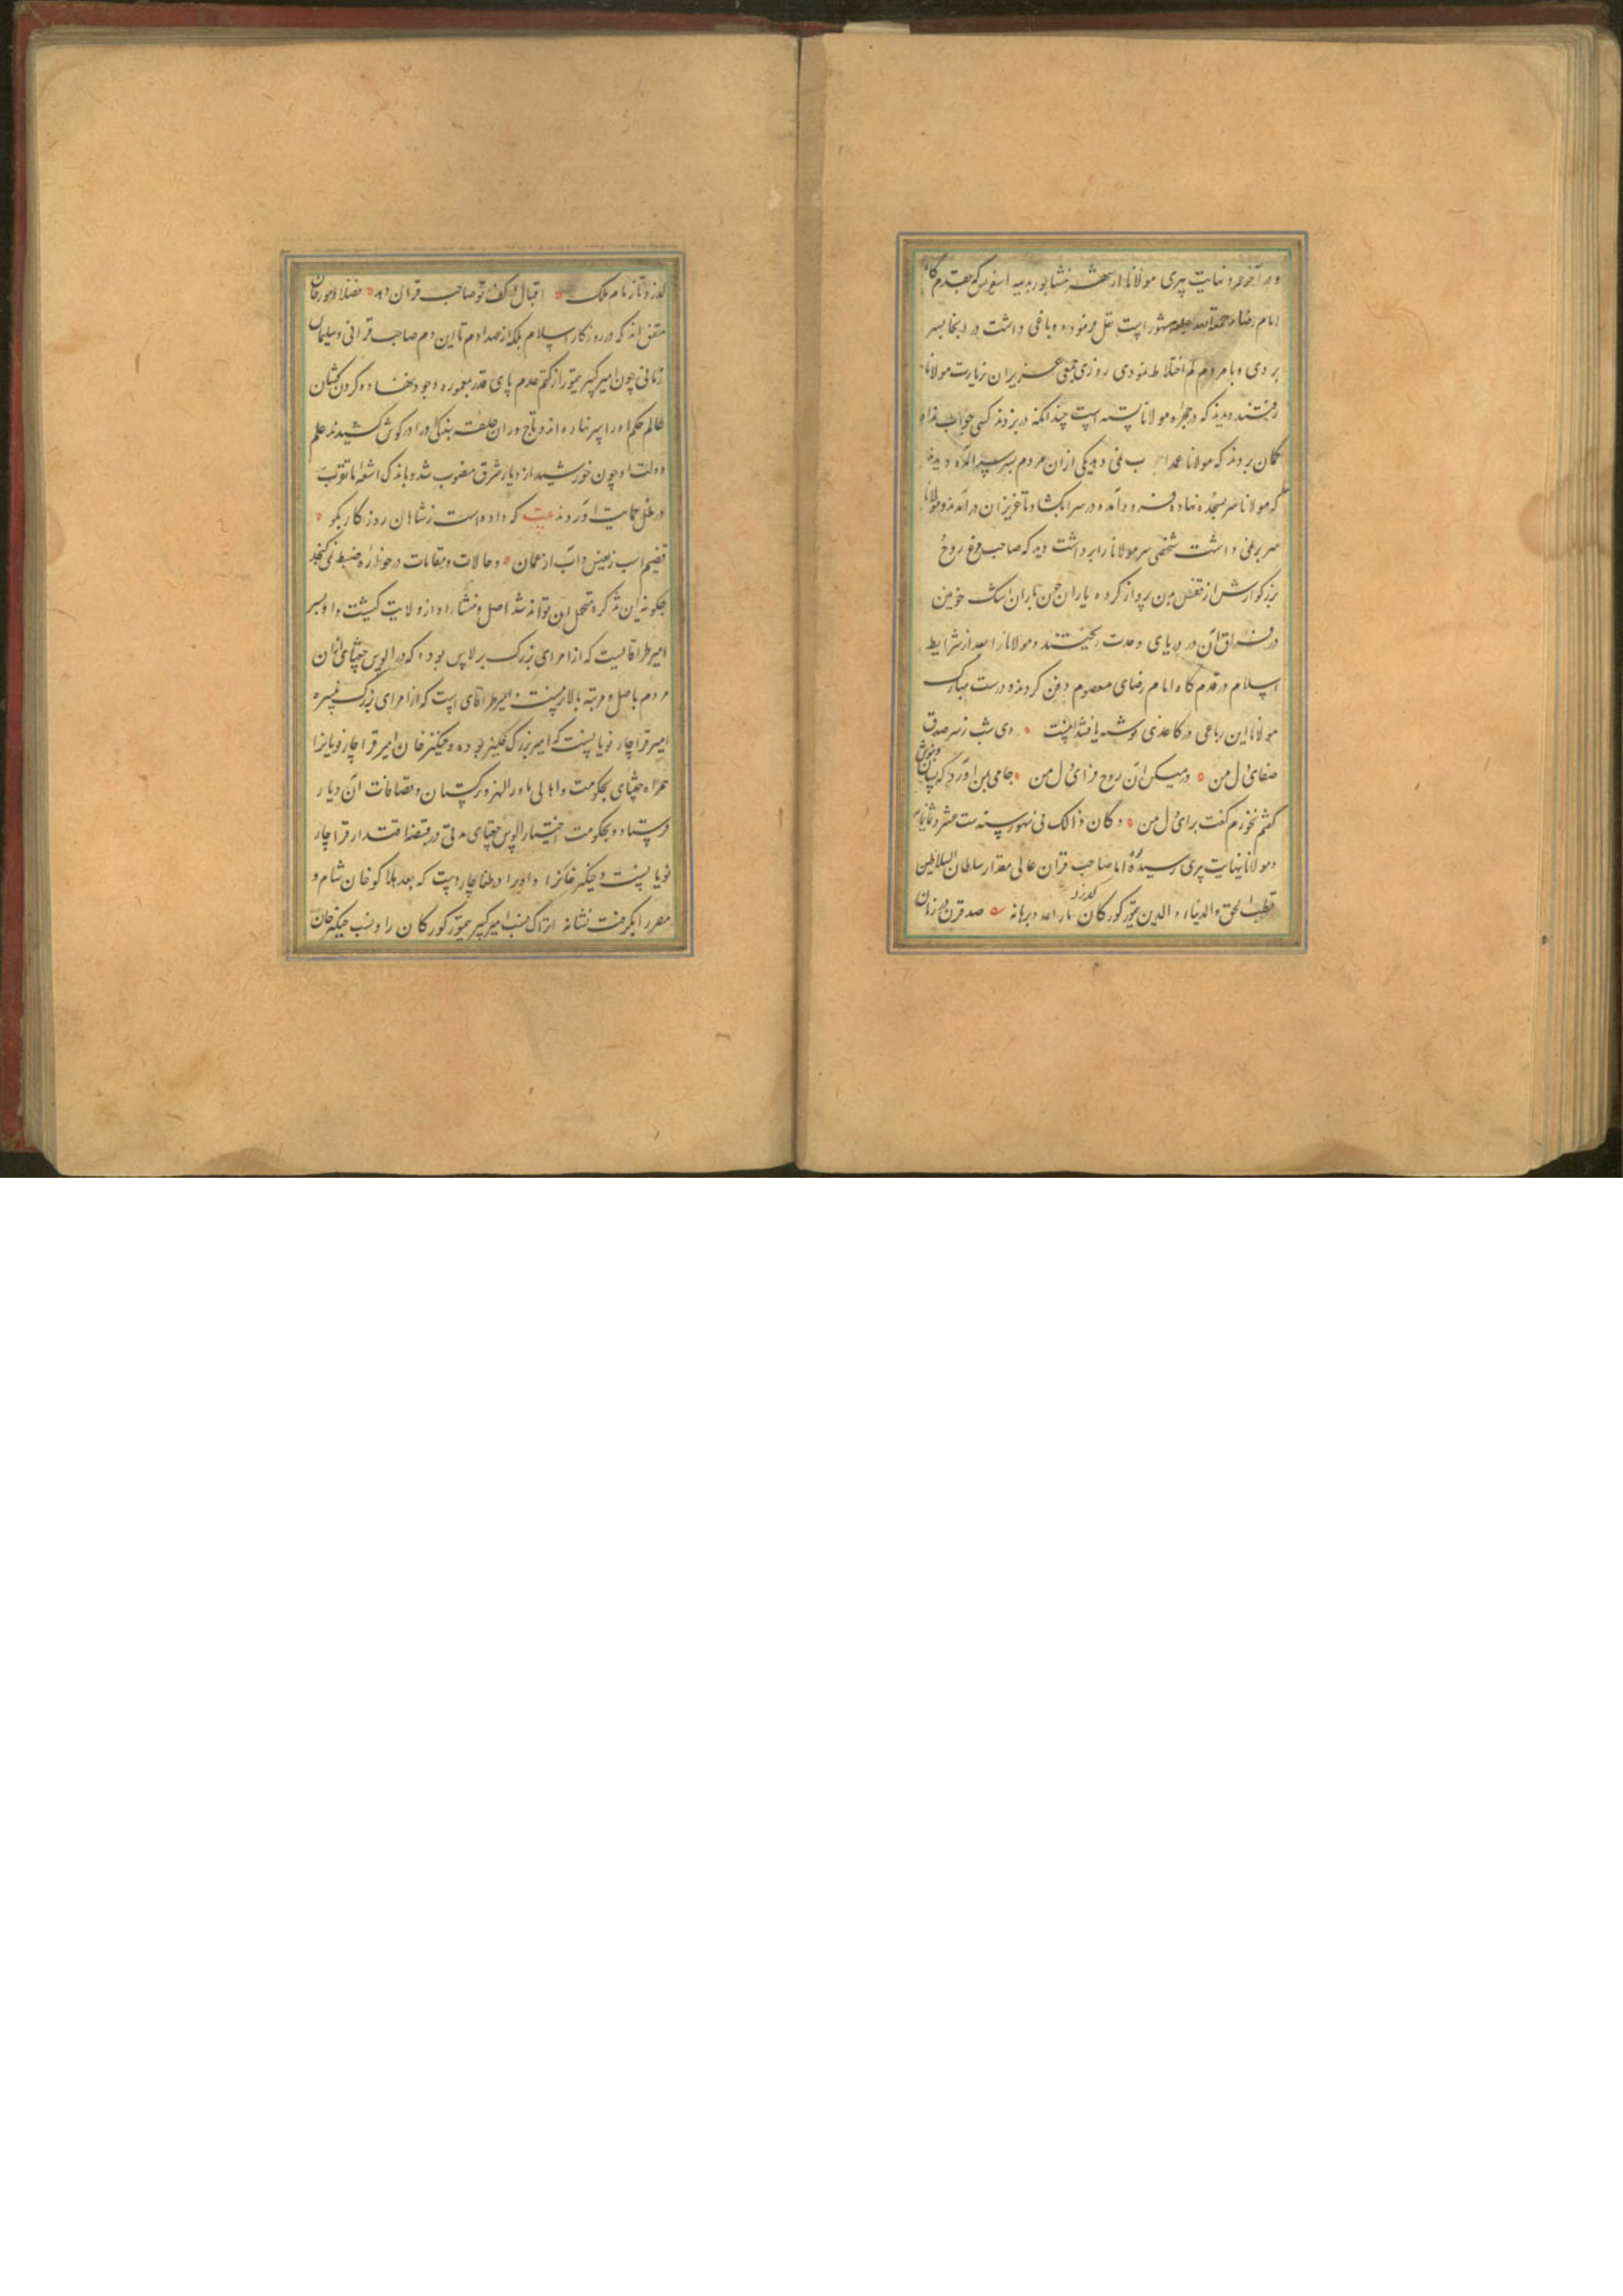 و در آخر عمر و نهایت پیری مولانا از شهر نیشابور بدیه اسفریس که بقدم گاه
امام رضا رحمة الله علیه مشهور است نقل فرمود و باغی داشت در انجا بسر
بردی و با مردم کم اختلاط نمودی روزی جمعی عزیزان بزیارت مولانا
رفتند دیدند که در حجره مولانا بسته است چندانکه در بزدند کسی جواب نداد
کمان بردند که مولانا عمدا جواب نمی دهد یکی ازان مردم بسر برآمده دید
که مولانا سر بسجده نهاده فرود آمده در سرا بکشاد تا عزیزان در آمدند و مولانا
سر بر نمی داشت شخصی سر مولانا را برداشت دید که صاحب مرغ روح
بزرگوارش از قفس بدن پرواز کرده یاران چون باران اشک خونین
در فراق آن در دریای وحدت ریختند و مولانا را بعد از شرایط
اسلام در قدم گاه امام رضای معصوم دفن کردند و در دست مبارک
مولانا این رباعی در کاغذی نوشته یافتند اینست دی شب ز سر صدق
صفای دل من در میکده آن روح فزای دل من جامی بمن آورد که بستان و بنوش
کفتم نخورم کفت برای دل من و کان ذالک فی شهور سنه ست عشر و ثمانمایه
و مولانا بنهایت پیری رسیده اما صاحب قران عالی مقدار سلطان السلاطین
قطب الحق والدنیاء و الدین تیمور کورکان انار الله برهانه صد قرن در زمان گذرد
گذرد تا زمام ملک اقبال در کف تو صاحب قران دهد فضلا و مورخان
متفق اند که در روزکار اسلام بلکه از عهد ادم تا این دم صاحب قرانی و سلیمان
زمانی چون امیر کبیر تیمور از کتم عدم پای قدر بمعموره وجود ننهاده کردن کشان
عالم حکم او را سر نهاده اند و تاج وران حلقه بندکی او را در کوش کشیدند علم
دولت او چون خورشید از دیار شرق منصوب شد و باندک اشعه تا بقوب
در ظل حمایت آوردند بیت که داده است ز شاهان روزکار بکو
قضیم اسب ز بعیس و آب از عمان و حالات و مقامات در حوزه ضبط نمی کنجد
چکونه این تذکره متحمل ان تواند شد اصل و منشاء او از ولایت کیشت و او پسر
امیر طراقا یست که از امرای بزرک برلاس بوده که در الوس جغتای ازان
مردم باصل و مرتبه بالاتر نیست و امیر طراقای است که از امرای بزرک نبیره
امیر قراچار نویانست که امیر بزرک چنکیز بوده و چنکیز خان امیر قراچار نویانرا
همراه جغتای بحکومت و اهالی ماورالنهر و ترکستان و مضافات آن دیار
فرستاد و بحکومت اختیار الوس جغتای مدتی در قبضه اقتدار قراچار
نویانست و چنکیز خانرا و او برادر است که بعد هلاکو خان شام و
مصر را بکرفت نسابه اتراک نسب امیر کبیر تیمور کورکان را و نسب چنکیز خان